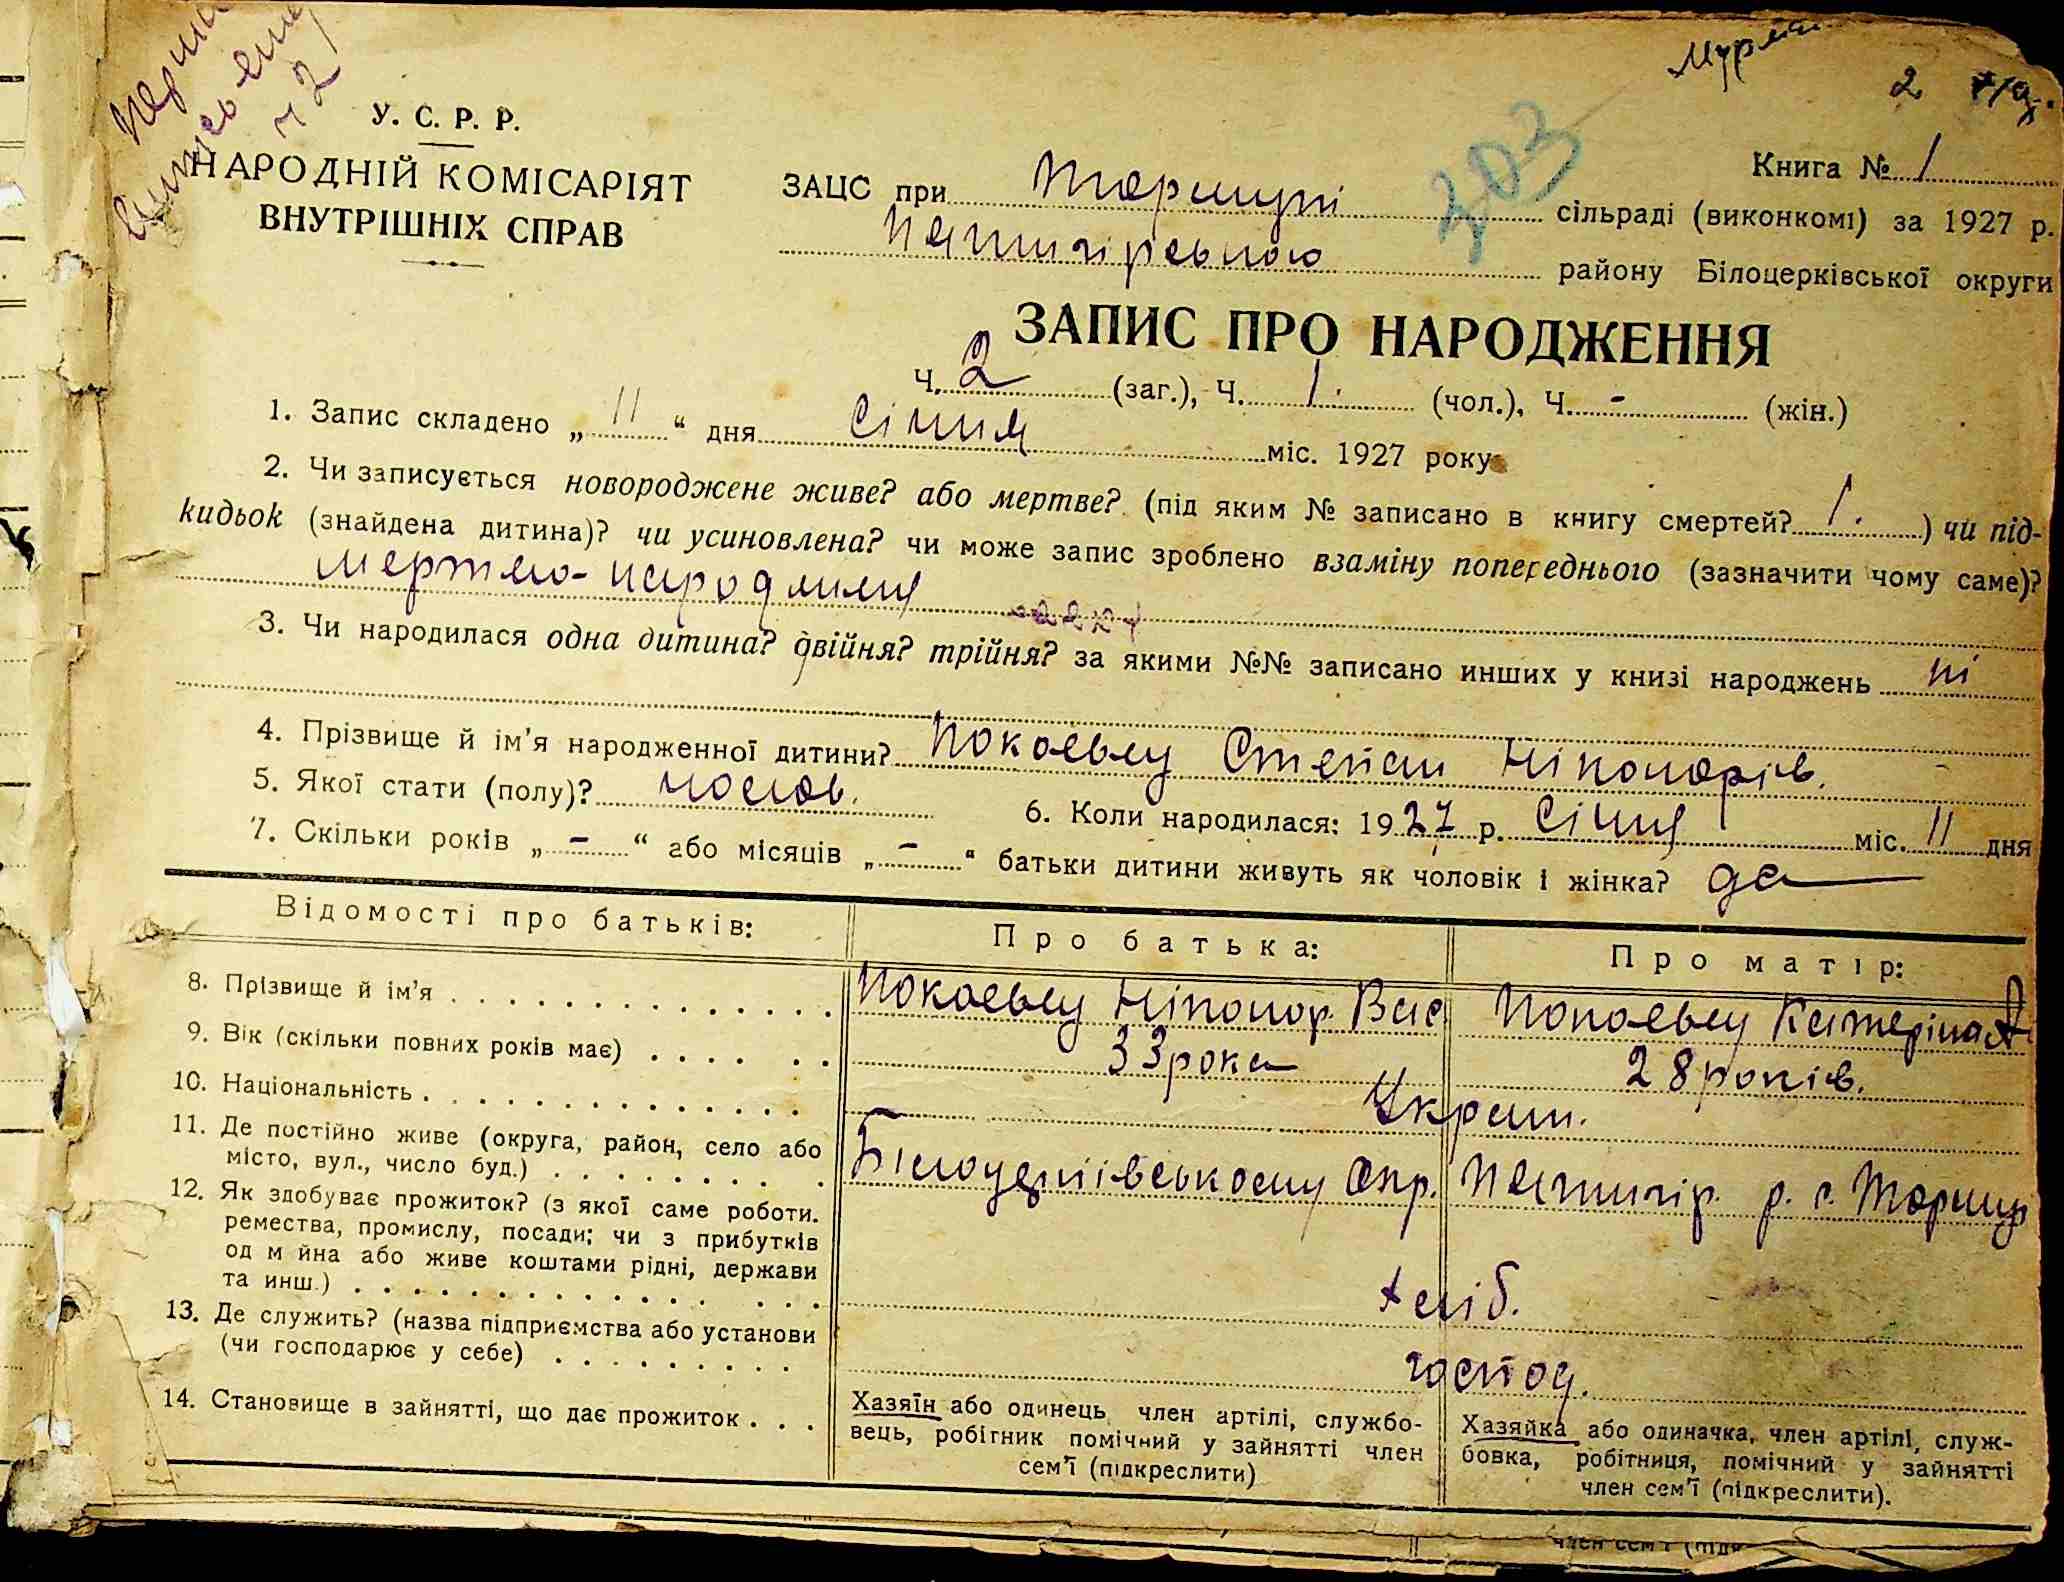 2
У. С. Р. Р.
НАРОДНІЙ КОМІСАРІЯТ
ВНУТРІШНІХ СПРАВ
203
Книга № 1
ЗАЦС при сільраді (виконкомі) за 1927 р.
району Білоцерківської округи
ЗАПИС ПРО НАРОДЖЕННЯ
Ч. 2 (заг.), Ч. 1. (чол.), Ч. - (жін.)
1. Запис складено „ 11 “ дня Січня міс. 1927 року
2. Чи записується новороджене живе? або мертве? (під яким № записано в книгу смертей? 1. ) чи під-
кидьок (знайдена дитина)? чи усиновлена? чи може запис зроблено взаміну попереднього (зазначити чому саме)?
3. Чи народилася одна дитина? двійня? трійня? за якими №№ записано инших у книзі народжень ні
4. Прізвище й ім'я народженної дитини? Степан Ніпонорів.
5. Якої стати (полу)? 6. Коли народилася: 1927 р. Січня міс. 11 дня
7. Скільки років „ - “ або місяців „ - “ батьки дитини живуть як чоловік і жінка? да
Відомості про батьків: Про батька: Про матір:
8. Прізвище й ім'я Ніпонор Вас Катеріна А
9. Вік (скільки повних років має) 33 рока 28 років.
10. Національність Украин.
11. Де постійно живе (округа, район, село або
місто, вул., число буд.) Окр. р. с.
12. Як здобуває прожиток? (з якої саме роботи.
ремества, промислу, посади; чи з прибутків
од м йна або живе коштами рідні, держави
та инш.) хліб.
13. Де служить? (назва підприємства або установи
(чи господарює у себе) господ.
14. Становище в зайнятті, що дає прожиток
Хазяїн або одинець член артілі, службо-
вець, робітник помічний у зайнятті член
сем'ї (підкреслити)
Хазяйка або одиначка, член артілі, служ-
бовка, робітниця, помічний у зайнятті
член сем'ї (підкреслити).
член сем'ї (підк